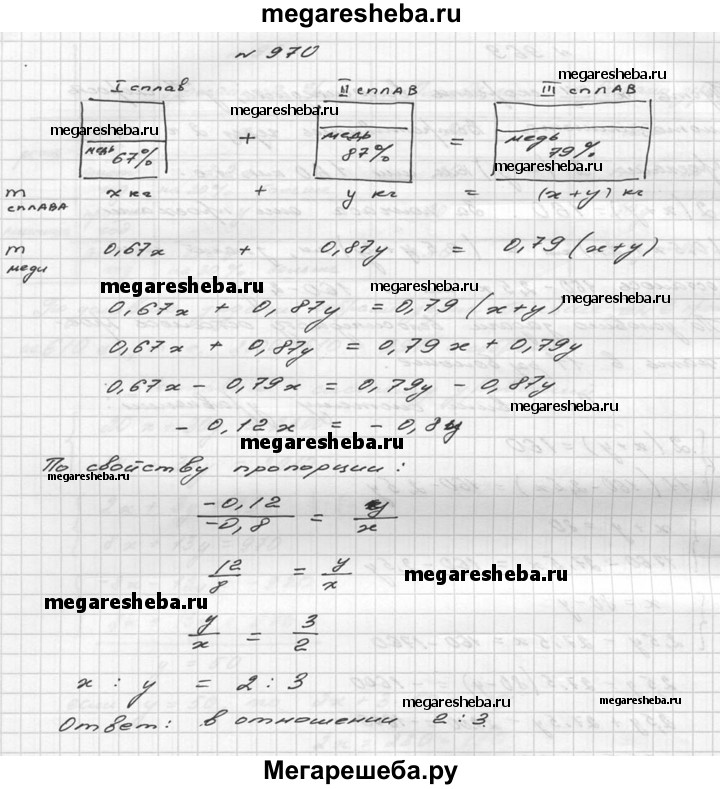 megaresheba.ru
№ 970
I сплав II сплав III сплав
megaresheba.ru
megaresheba.ru
megaresheba.ru
медь 67% + медь 87% = медь 79%
megaresheba.ru
m сплава x кг + y кг = (x+y) кг
m меди 0,67x + 0,87y = 0,79(x+y)
megaresheba.ru megaresheba.ru megaresheba.ru
0,67x + 0,87y = 0,79(x+y)
0,67x + 0,87y = 0,79x + 0,79y
0,67x - 0,79x = 0,79y - 0,87y
megaresheba.ru
- 0,12x = - 0,8y
megaresheba.ru
По свойству пропорции:
megaresheba.ru
-0,12/-0,8 = y/x
12/8 = y/x
megaresheba.ru
megaresheba.ru
y/x = 3/2
x : y = 2 : 3
megaresheba.ru megaresheba.ru
Ответ: в отношении 2:3
Мегарешеба.ру